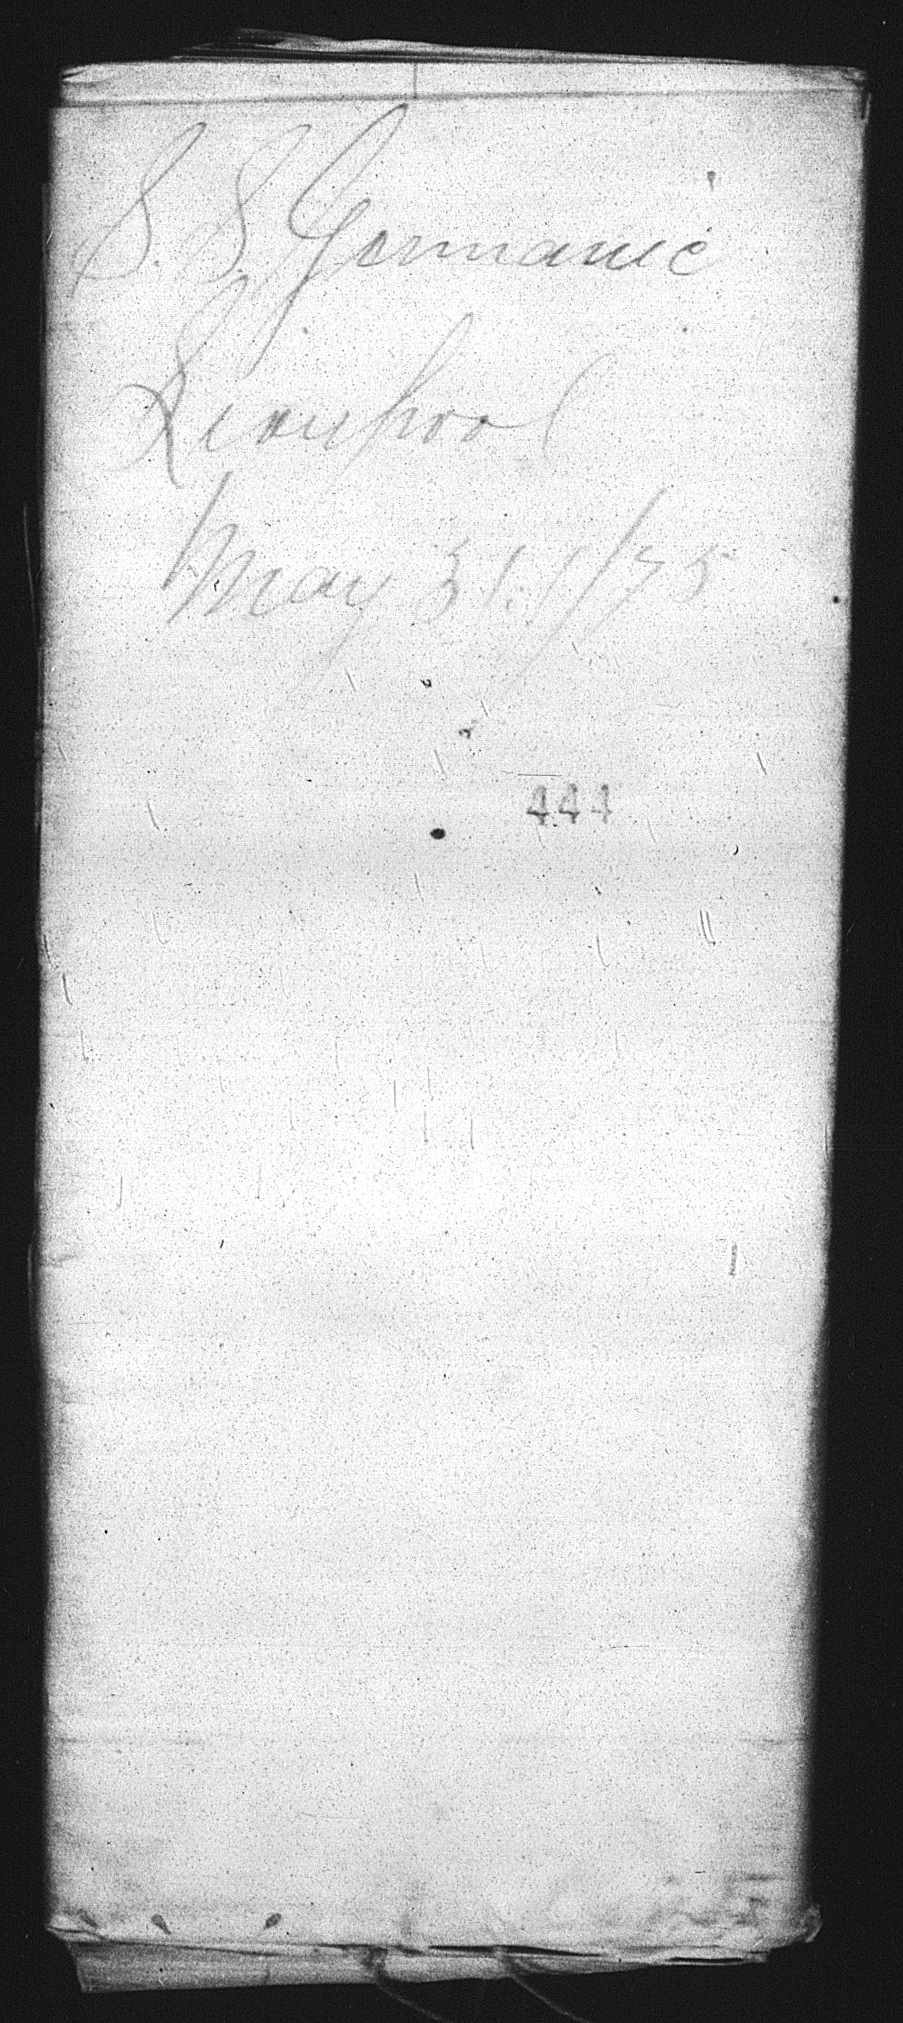 S. S. Germanic
Liverpool
May 31./75
444